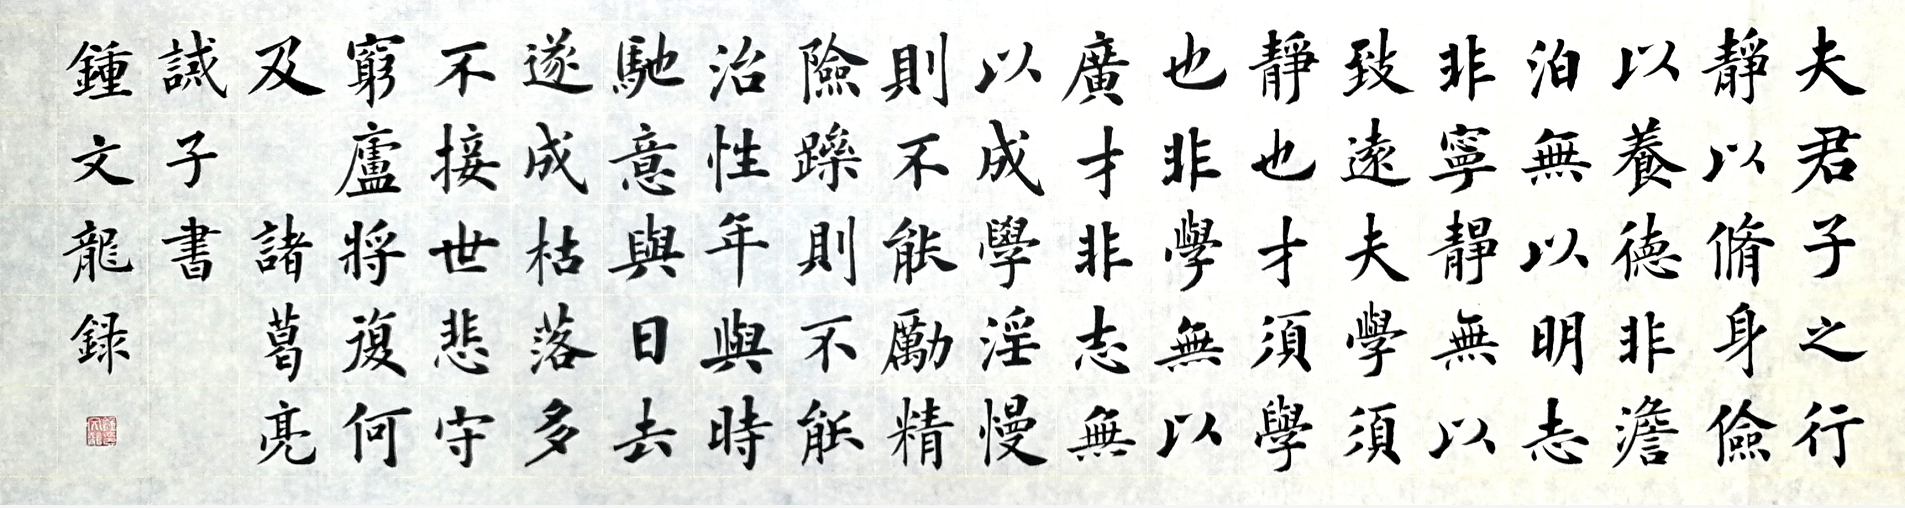 夫君子之行
靜以脩身儉
以養德非澹
泊無以明志
非寧靜無以
致遠夫學須
靜也才須學
也非學無以
廣才非志無
以成學淫慢
則不能勵精
險躁則不能
治性年與時
馳意與日去
遂成枯落多
不接世悲守
窮廬將復何
及 諸葛亮
誡子書
鍾文龍録